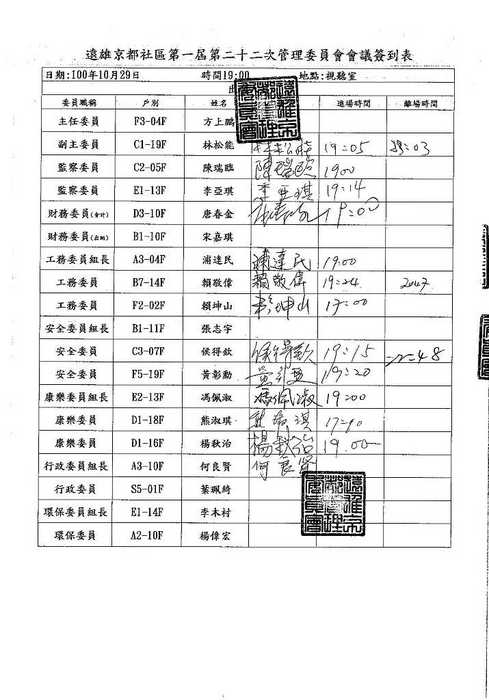 遠雄京都社區第一屆第二十二次管理委員會會議簽到表
日期:100年10月29日 時間19:00 地點:視聽室
出
委員職稱 戶別 姓名 進場時間 離場時間
主任委員 F3-04F 方上鵬
副主任委員 C1-19F 林松能 林松能 19:05
監察委員 C2-05F 陳瑞 陳瑞 1900
監察委員 E1-13F 李亞琪 李亞琪 19:14
財務委員(會計) D3-10F 唐春金 19:00
財務委員(出納) B1-10F 宋嘉琪
工務委員組長 A3-04F 浦達民 浦達民 19:00
工務委員 B7-14F 賴敬偉 賴敬偉 19:24 2047
工務委員 F2-02F 賴坤山 賴坤山
安全委員組長 B1-11F 張志宇
安全委員 C3-07F 侯得欽 侯得欽 19:15
安全委員 F5-19F 黃彰勳 19:20
康樂委員組長 E2-13F 馮佩淑 馮佩淑 19:00
康樂委員 D1-18F 熊淑琪 熊淑琪
康樂委員 D1-16F 楊秋治 楊秋治 19:00
行政委員組長 A3-10F 何良賢 何良賢
行政委員 S5-01F 葉珮綺
環保委員組長 E1-14F 李木村
環保委員 A2-10F 楊偉宏